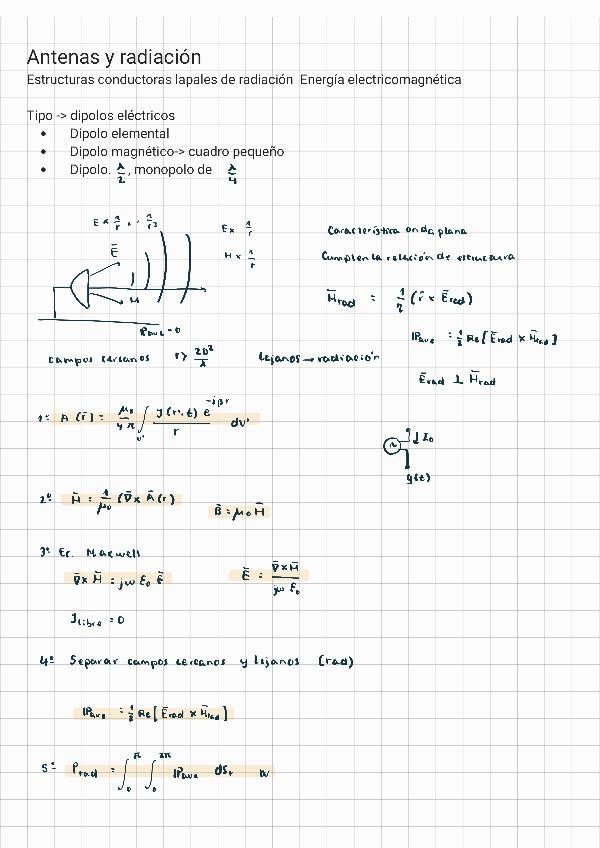 Antenas y radiación
Estructuras conductoras lapales de radiación Energía electricomagnética
Tipo -> dipolos eléctricos
• Dipolo elemental
• Dipolo magnético-> cuadro pequeño
• Dipolo. λ/2, monopolo de λ/4
E ∝ 1/r
H ∝ 1/r
Ē
H
Pave = 0
Característica onda plana
Cumplen la relación de estructura
H̄rad = 1/η (r̂ × Ērad)
IPave = 1/2 Re[Ērad × H̄rad]
Ērad ⊥ H̄rad
campos cercanos r > 2D²/λ lejanos → radiación
1º A(r̄) = μ₀/4π ∫v' J(r',t) e^-jβr / r dv'
I₀
g(t)
2º H̄ = 1/μ₀ (∇̄ × Ā(r)) B̄ = μ₀ H̄
3º Ec. Maxwell
∇̄ × H̄ = jω ε₀ Ē Ē = ∇̄ × H̄ / jω ε₀
Jlibre = 0
4º Separar campos cercanos y lejanos (rad)
IPave = 1/2 Re[Ērad × H̄rad]
5º Prad = ∫₀^π ∫₀^2π IPave dsr W